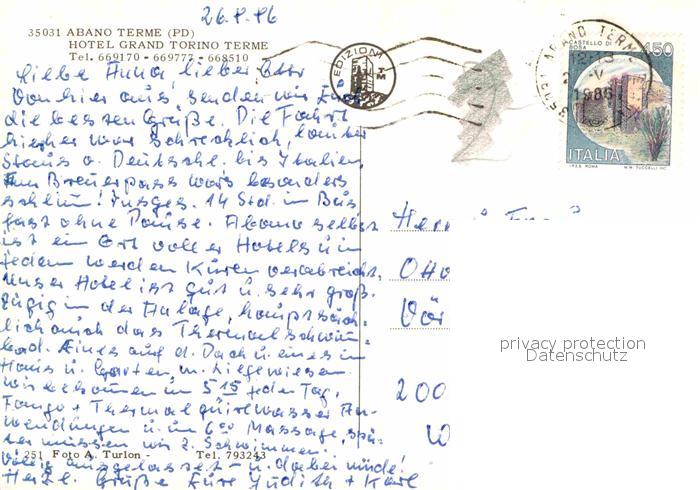 26.8.86
35031 ABANO TERME (PD)
HOTEL GRAND TORINO TERME
Tel. 669170 - 669777 - 668510
Liebe Anna, lieber Otto
Von hier aus, senden wir Euch
die besten Grüße. Die Fahrt
hierher war schrecklich, lauter
Staus v. Deutschl. bis Italien.
Am Brennerpass war's besonders
schlim! Insges. 14 Std. im Bus
fast ohne Pause. Abano selbst
ist ein Ort voller Hotels u in
jedem werden Kuren verabreicht.
Unser Hotel ist gut u. sehr groß-
zügig in der Anlage, hauptsäch-
lich auch das Thermalschwim-
bad. Eines auf d. Dach u. eines im
Haus u. Garten m. Liegewiesen.
Wir bekommen um 5 15 jeden Tag,
Fango + Thermalquellwasser An-
wendungen u. um 6 00 Massage, spä-
ter müssen wir z. Schwimmen.
Völlig ausgelastet - u. dabei müde!
Herzl. Grüße Eure Judith + Karl
251 Foto A. Turlon - Tel. 793243
EDIZIONI
35031 ABANO TERME
12-13
1986
CASTELLO DI
450
ITALIA
I.P.Z.S. ROMA
Otto
200
W
privacy protection
Datenschutz